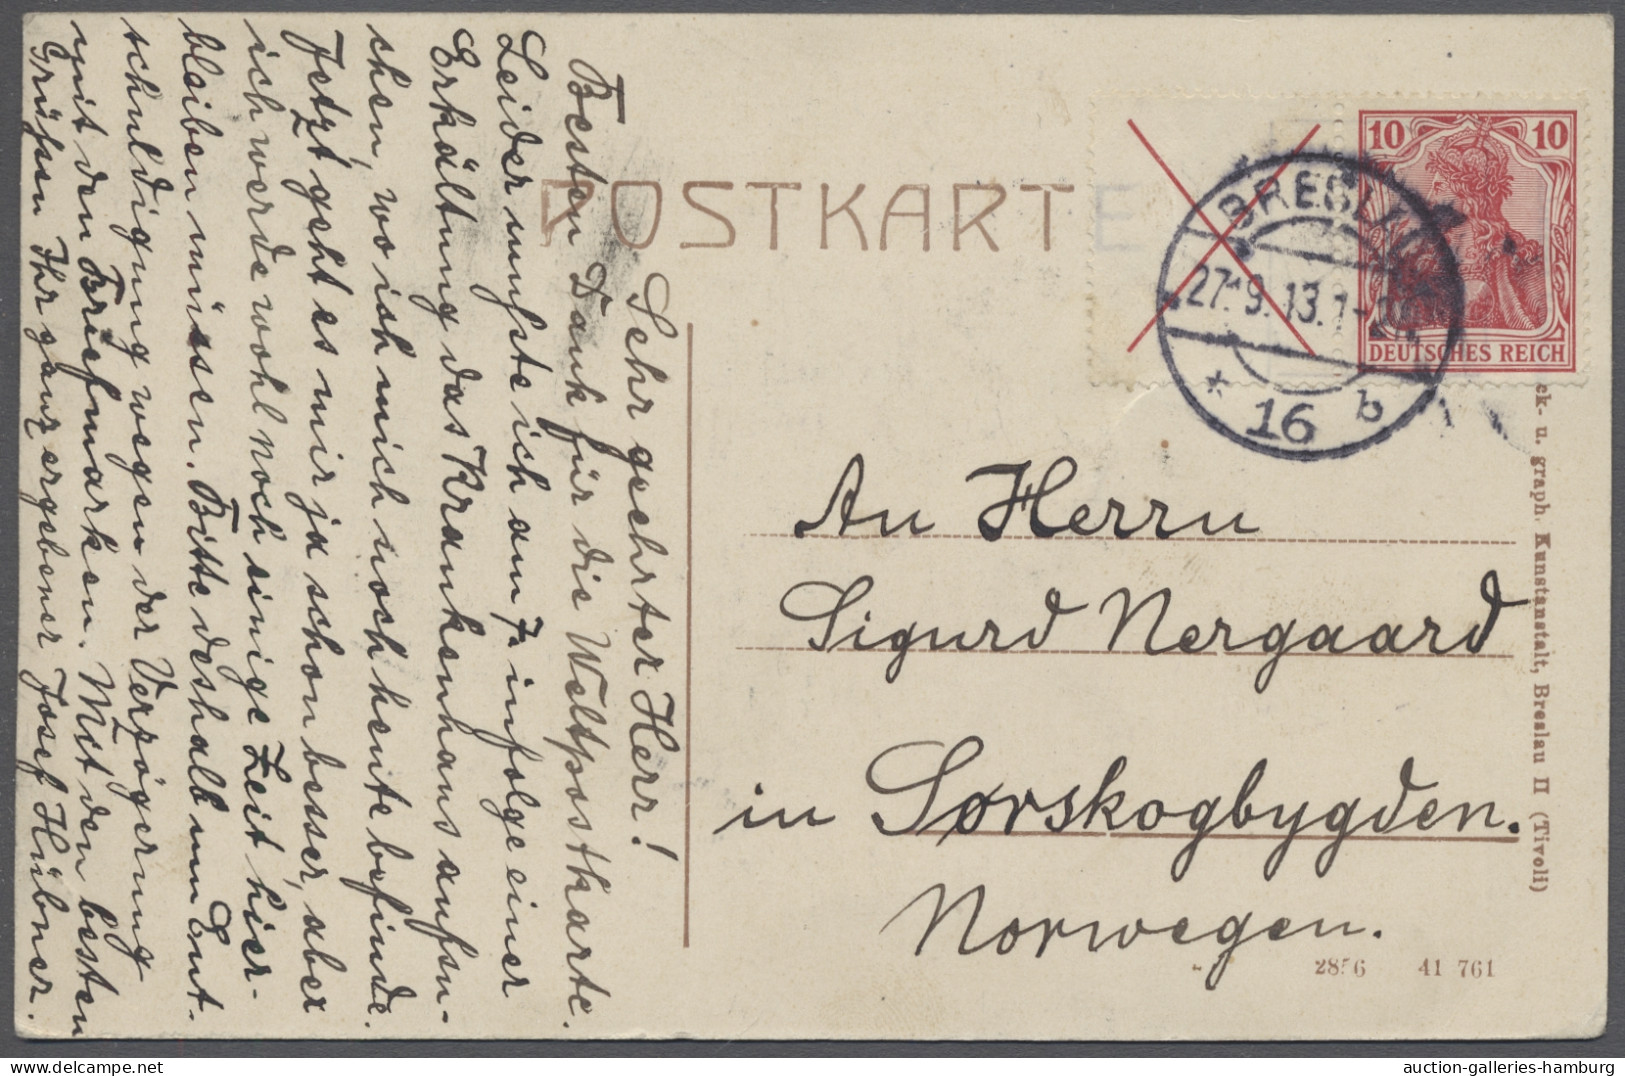 POSTKARTE
10 10
DEUTSCHES REICH
BRESLAU
27.9.13.1-2N.
* 16 b
Sehr geehrter Herr!
Besten Dank für die Weltpostkarte.
Leider mußte ich am 7. infolge einer
Erkältung das Krankenhaus aufsu-
chen, wo ich mich noch heute befinde.
Jetzt geht es mir ja schon besser, aber
ich werde wohl noch einige Zeit hier-
bleiben müssen. Bitte deshalb um Ent-
schuldigung wegen der Verzögerung
mit den Briefmarken. Mit den besten
Grüßen Ihr ganz ergebener Josef Hübner.
An Herrn
Sigurd Nergaard
in Sørskogbygden.
Norwegen.
ck- u. graph. Kunstanstalt, Breslau II (Tivoli)
41 761
auction-galleries-hamburg